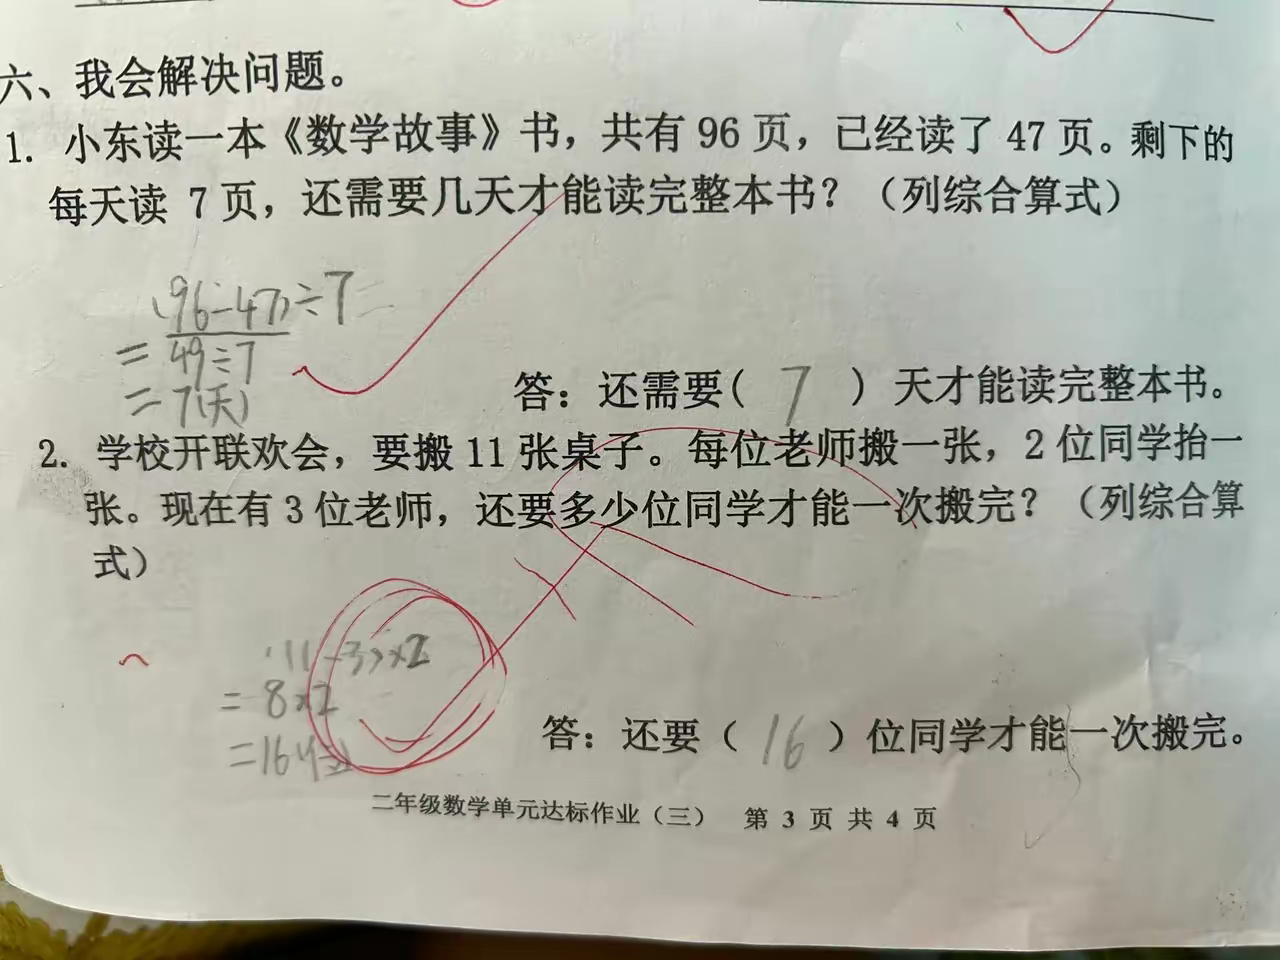 六、我会解决问题。
1. 小东读一本《数学故事》书，共有 96 页，已经读了 47 页。剩下的
每天读 7 页，还需要几天才能读完整本书？（列综合算式）
(96-47)÷7=
=49÷7
=7(天)
答：还需要( 7 ）天才能读完整本书。
2. 学校开联欢会，要搬 11 张桌子。每位老师搬一张，2 位同学抬一
张。现在有 3 位老师，还要多少位同学才能一次搬完？（列综合算
式）
(11-3)×2
=8×2
=16(位)
答：还要（ 16 ）位同学才能一次搬完。
二年级数学单元达标作业（三） 第 3 页 共 4 页